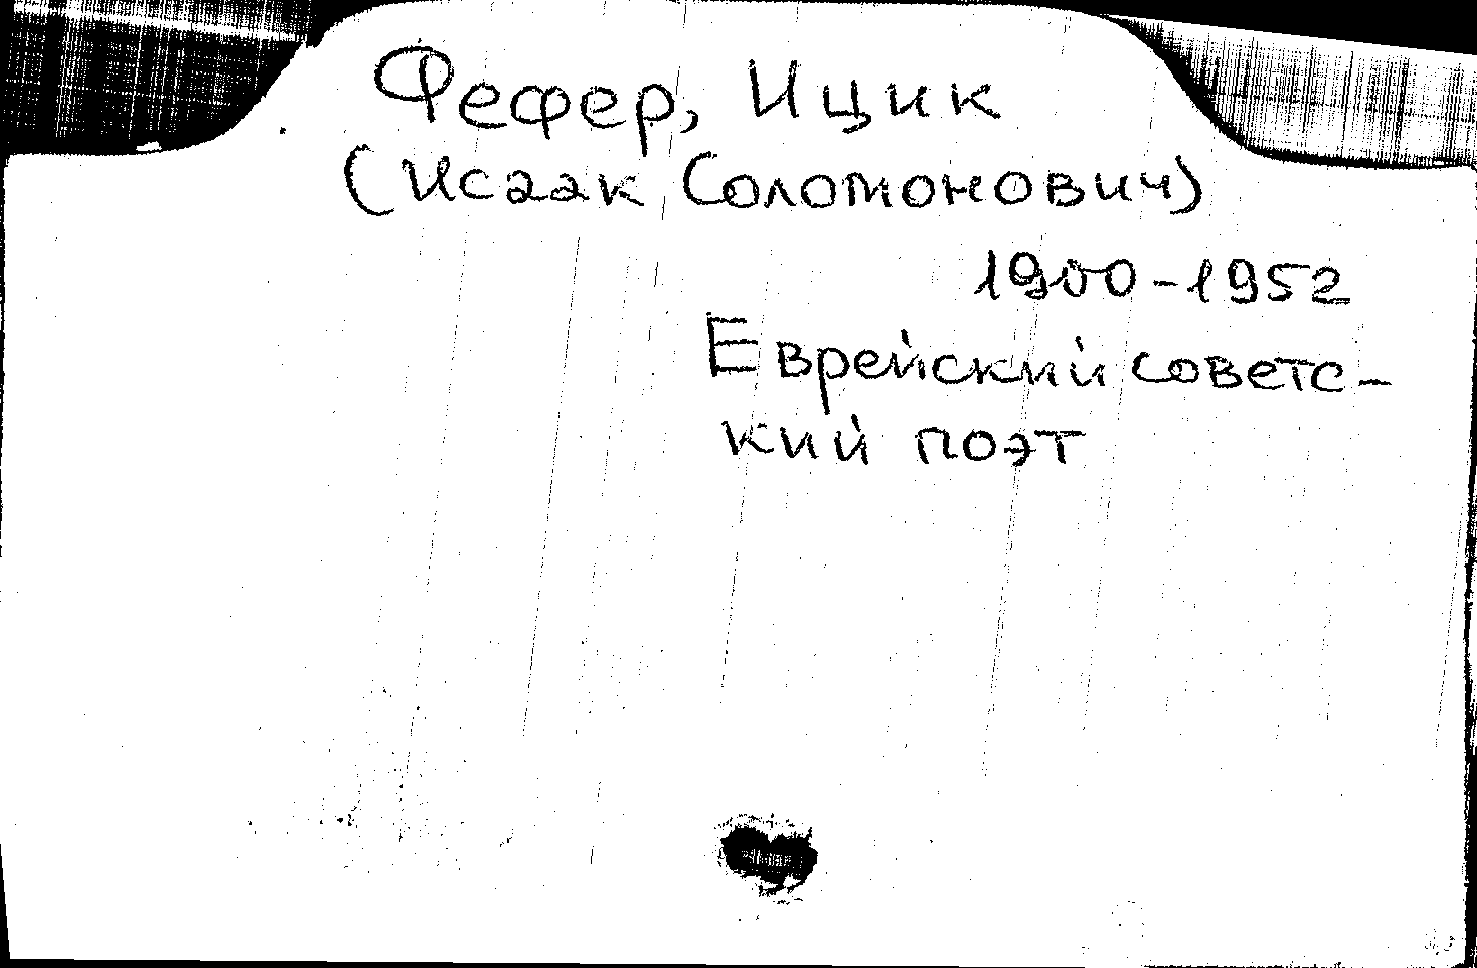 Фефер, Ицик
(Исаак Соломонович)
1900-1952
Еврейский советс-
кий поэт